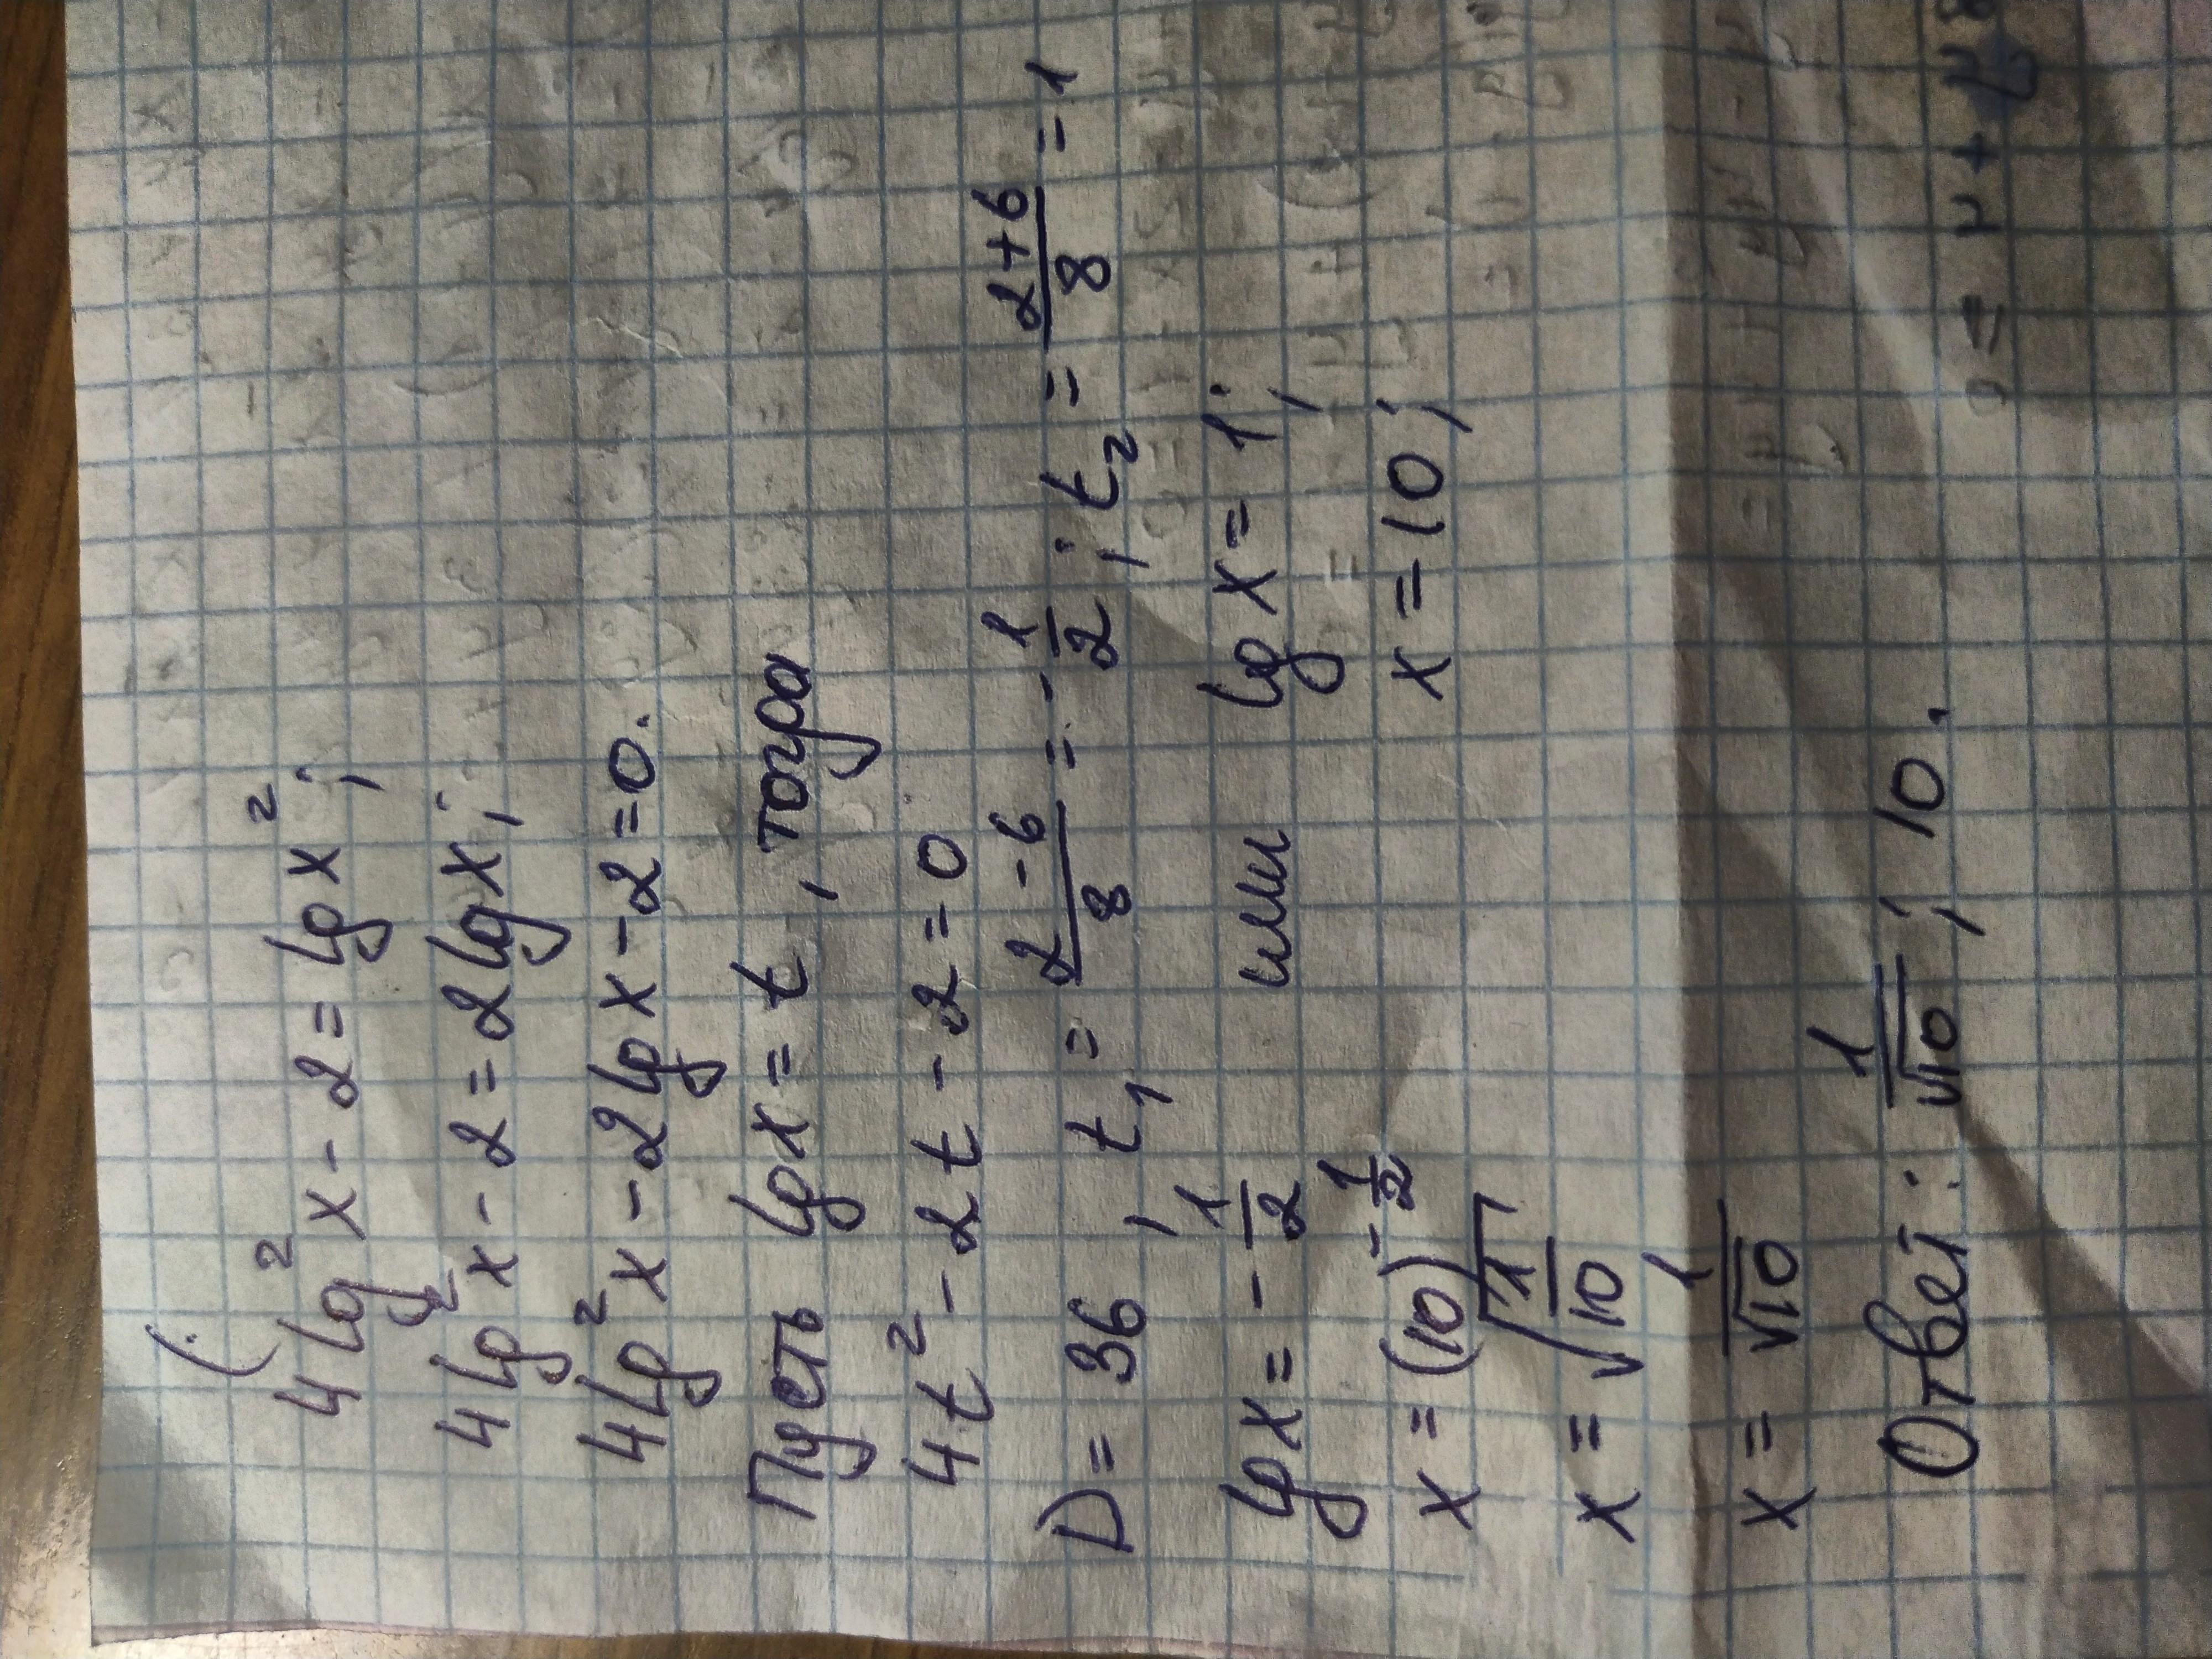 4lg²x - 2 = lg x²;
4lg²x - 2 = 2lg x;
4lg²x - 2lg x - 2 = 0.
Пусть lg x = t, тогда
4t² - 2t - 2 = 0
D = 36, t₁ = (2-6)/8 = -1/2; t₂ = (2+6)/8 = 1
lg x = -1/2 или lg x = 1;
x = (10)^(-1/2) x = 10;
x = √(1/10)
x = 1/√10
Ответ: 1/√10; 10.